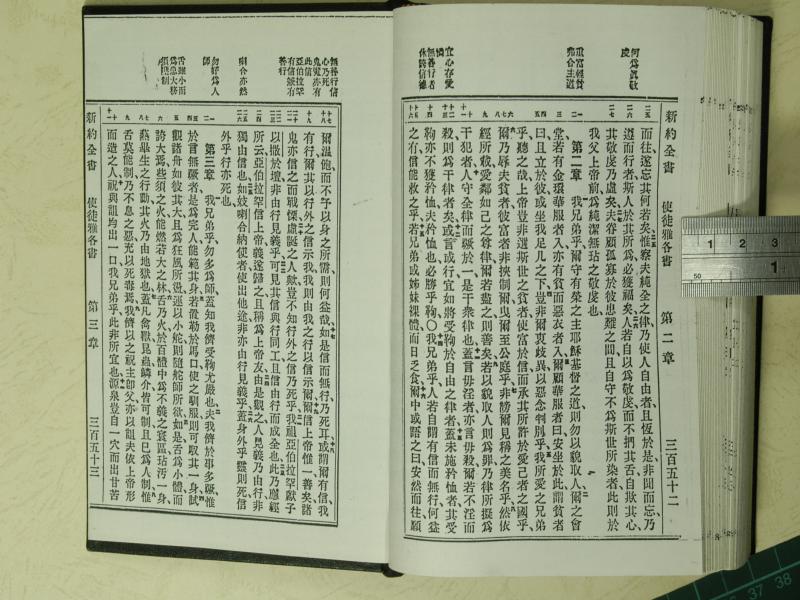 新約全書　使徒雅各書　第二章　三百五十二
何爲眞敬虔
重富輕貧弗合主道
宜心存愛憐
無善行者休誇信德
而往遂忘其何若矣惟察夫純全之律乃使人自由者且恆於是非聞而忘乃
遵而行者斯人於其所爲必獲福矣人若自以爲敬虔而不捫其舌自欺其心
其敬虔乃虛矣夫眷顧孤寡於彼患難之間且自守不爲斯世所染者此則於
我父上帝前爲純潔無玷之敬虔也
第二章　我兄弟乎爾守有榮之主耶穌基督之道則勿以貌取人爾之會
堂若有金環華服者入亦有貧而惡衣者入爾顧華服者曰安坐於此謂貧者
曰且立於彼或坐我足几之下豈非爾衷歧異以惡念判別乎我所愛之兄弟
乎聽之哉上帝豈非選斯世之貧者使富於信而承其所許於愛己者之國乎
爾乃辱夫貧者彼富者非挾制爾曳爾至公庭乎非謗爾見稱之美名乎然依
經所載愛鄰如己之尊律爾若盡之則善矣若以貌取人則爲罪乃律所擬爲
干犯者人守全律而蹶於一是干衆律也蓋言毋淫者亦言毋殺爾若不淫而
殺則爲干律者矣或言或行宜如將受鞫於自由之律者蓋未施矜恤者其受
鞫亦不獲矜恤夫矜恤也必勝乎鞫〇我兄弟乎人若自謂有信而無行何益
之有信能救之乎若兄弟或姊妹裸體而日乏食爾中或語之曰安然而往願
無善行信心乃死
鬼魔亦有此信
亞伯拉罕有信兼有善行
喇合亦然
勿好爲人師
舌雖小而爲患大務須嚴制
爾溫飽而不予以身之所需則何益哉如是信而無行乃死耳或謂爾有信我
有行爾其以行外之信示我我則由我之行以信示爾爾信上帝惟一善矣諸
鬼亦信之而戰慄虛誕之人歟豈不知行外之信乃死乎我祖亞伯拉罕獻子
以撒於壇非由行見義乎可見其信與行同工且信由行而成全也此乃應經
所云亞伯拉罕信上帝義遂歸之且稱爲上帝友由是觀之人見義乃由行非
獨由信也如妓喇合納使者使出他途非亦由行見義乎蓋身外乎靈則死信
外乎行亦死也
第三章　我兄弟乎勿多爲師蓋知我儕受鞫尤嚴也夫我儕於事多蹶惟
於言無蹶者是爲完人能範其身若置勒於馬口使之馴服則可馭其一身試
觀諸舟如彼其大且爲狂風所盪運以小舵則隨舵師所欲如是舌爲小體而
誇大焉些須之火能燃若大之林舌乃火於百體中爲不義之寰區玷汚一身
燕畢生之行動其火乃由地獄也蓋凡禽獸昆蟲鱗介皆可制且已爲人制惟
舌莫能制乃不息之惡充以死毒焉我儕以之祝主卽父亦以詛夫依上帝形
而造之人祝與詛均出一口我兄弟乎此非所宜也源泉豈自一穴而出甘苦
新約全書　使徒雅各書　第三章　三百五十三